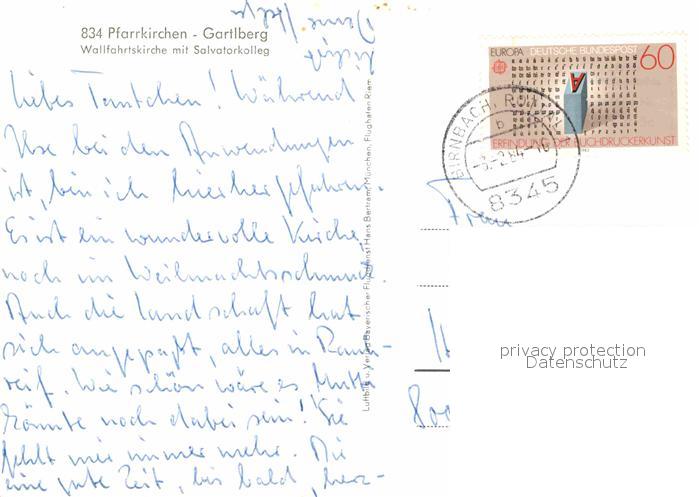 834 Pfarrkirchen - Gartlberg
Wallfahrtskirche mit Salvatorkolleg
liebes Tantchen! Während
Ilse bei den Anwendungen
ist, bin ich hierhergefahren.
Es ist ein wundervolle Kirche,
noch im Weihnachtsschmuck.
Auch die Landschaft hat
sich angepaßt, alles in Rauh-
reif. Wie schön wäre es Mutti
könnte noch dabei sein! Sie
fehlt mir immer mehr. Dir
eine gute Zeit, bis bald, herz-
Deine
Luftbild u. Verlag Bayerischer Flugdienst Hans Bertram, München, Flughafen Riem
EUROPA DEUTSCHE BUNDESPOST 60
ERFINDUNG DER BUCHDRUCKERKUNST
BIRNBACH, ROTTAL
b
8345
Frau
800
privacy protection
Datenschutz